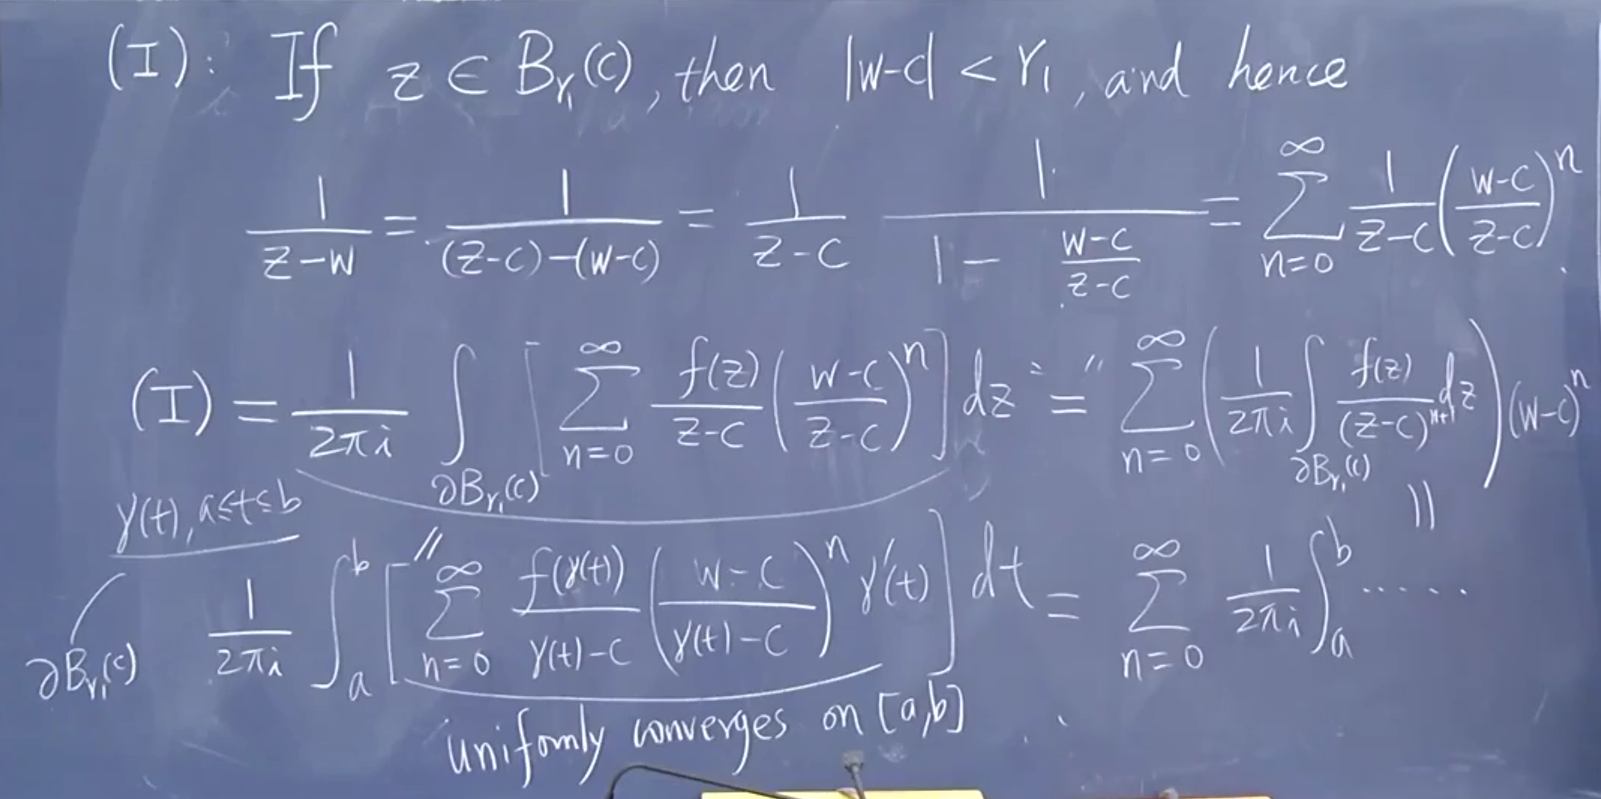 (I): If z ∈ B_{r_1}(c), then |w-c| < r_1, and hence
\frac{1}{z-w} = \frac{1}{(z-c)-(w-c)} = \frac{1}{z-c} \frac{1}{1-\frac{w-c}{z-c}} = \sum_{n=0}^{∞} \frac{1}{z-c} \left(\frac{w-c}{z-c}\right)^n.
(I) = \frac{1}{2πi} \int_{∂B_{r_1}(c)} \left[ \sum_{n=0}^{∞} \frac{f(z)}{z-c} \left(\frac{w-c}{z-c}\right)^n \right] dz "=" \sum_{n=0}^{∞} \left( \frac{1}{2πi} \int_{∂B_{r_1}(c)} \frac{f(z)}{(z-c)^{n+1}} dz \right) (w-c)^n
γ(t), a≤t≤b
∂B_{r_1}(c)
|| \frac{1}{2πi} \int_a^b \left[ \sum_{n=0}^{∞} \frac{f(γ(t))}{γ(t)-c} \left(\frac{w-c}{γ(t)-c}\right)^n γ'(t) \right] dt = \sum_{n=0}^{∞} \frac{1}{2πi} \int_a^b ...... ||
uniformly converges on [a,b]